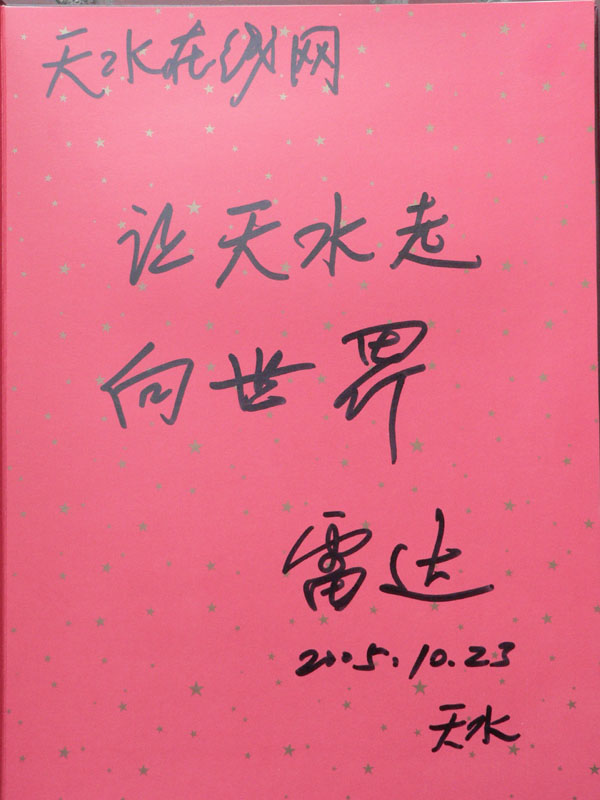 天水在线网
让天水走
向世界
雷达
2005.10.23
天水